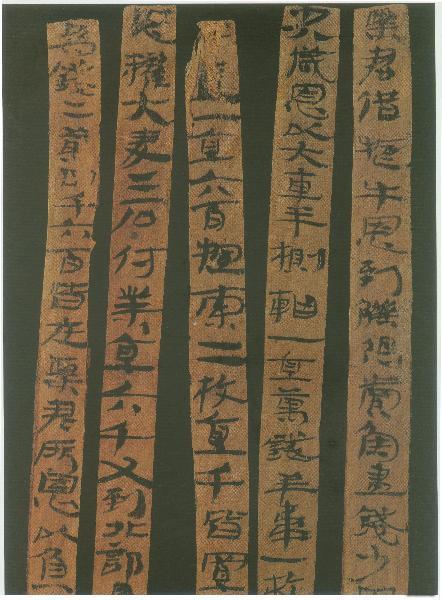 粟君借牛恩到觻得賣魚盡錢少
八歲恩以大車半軸一直萬錢羊韋一枚
一直六百索二枚直千皆置
恩糴大麥二石付業直六千又到北部
為錢二萬四千六百皆在粟君所恩以負